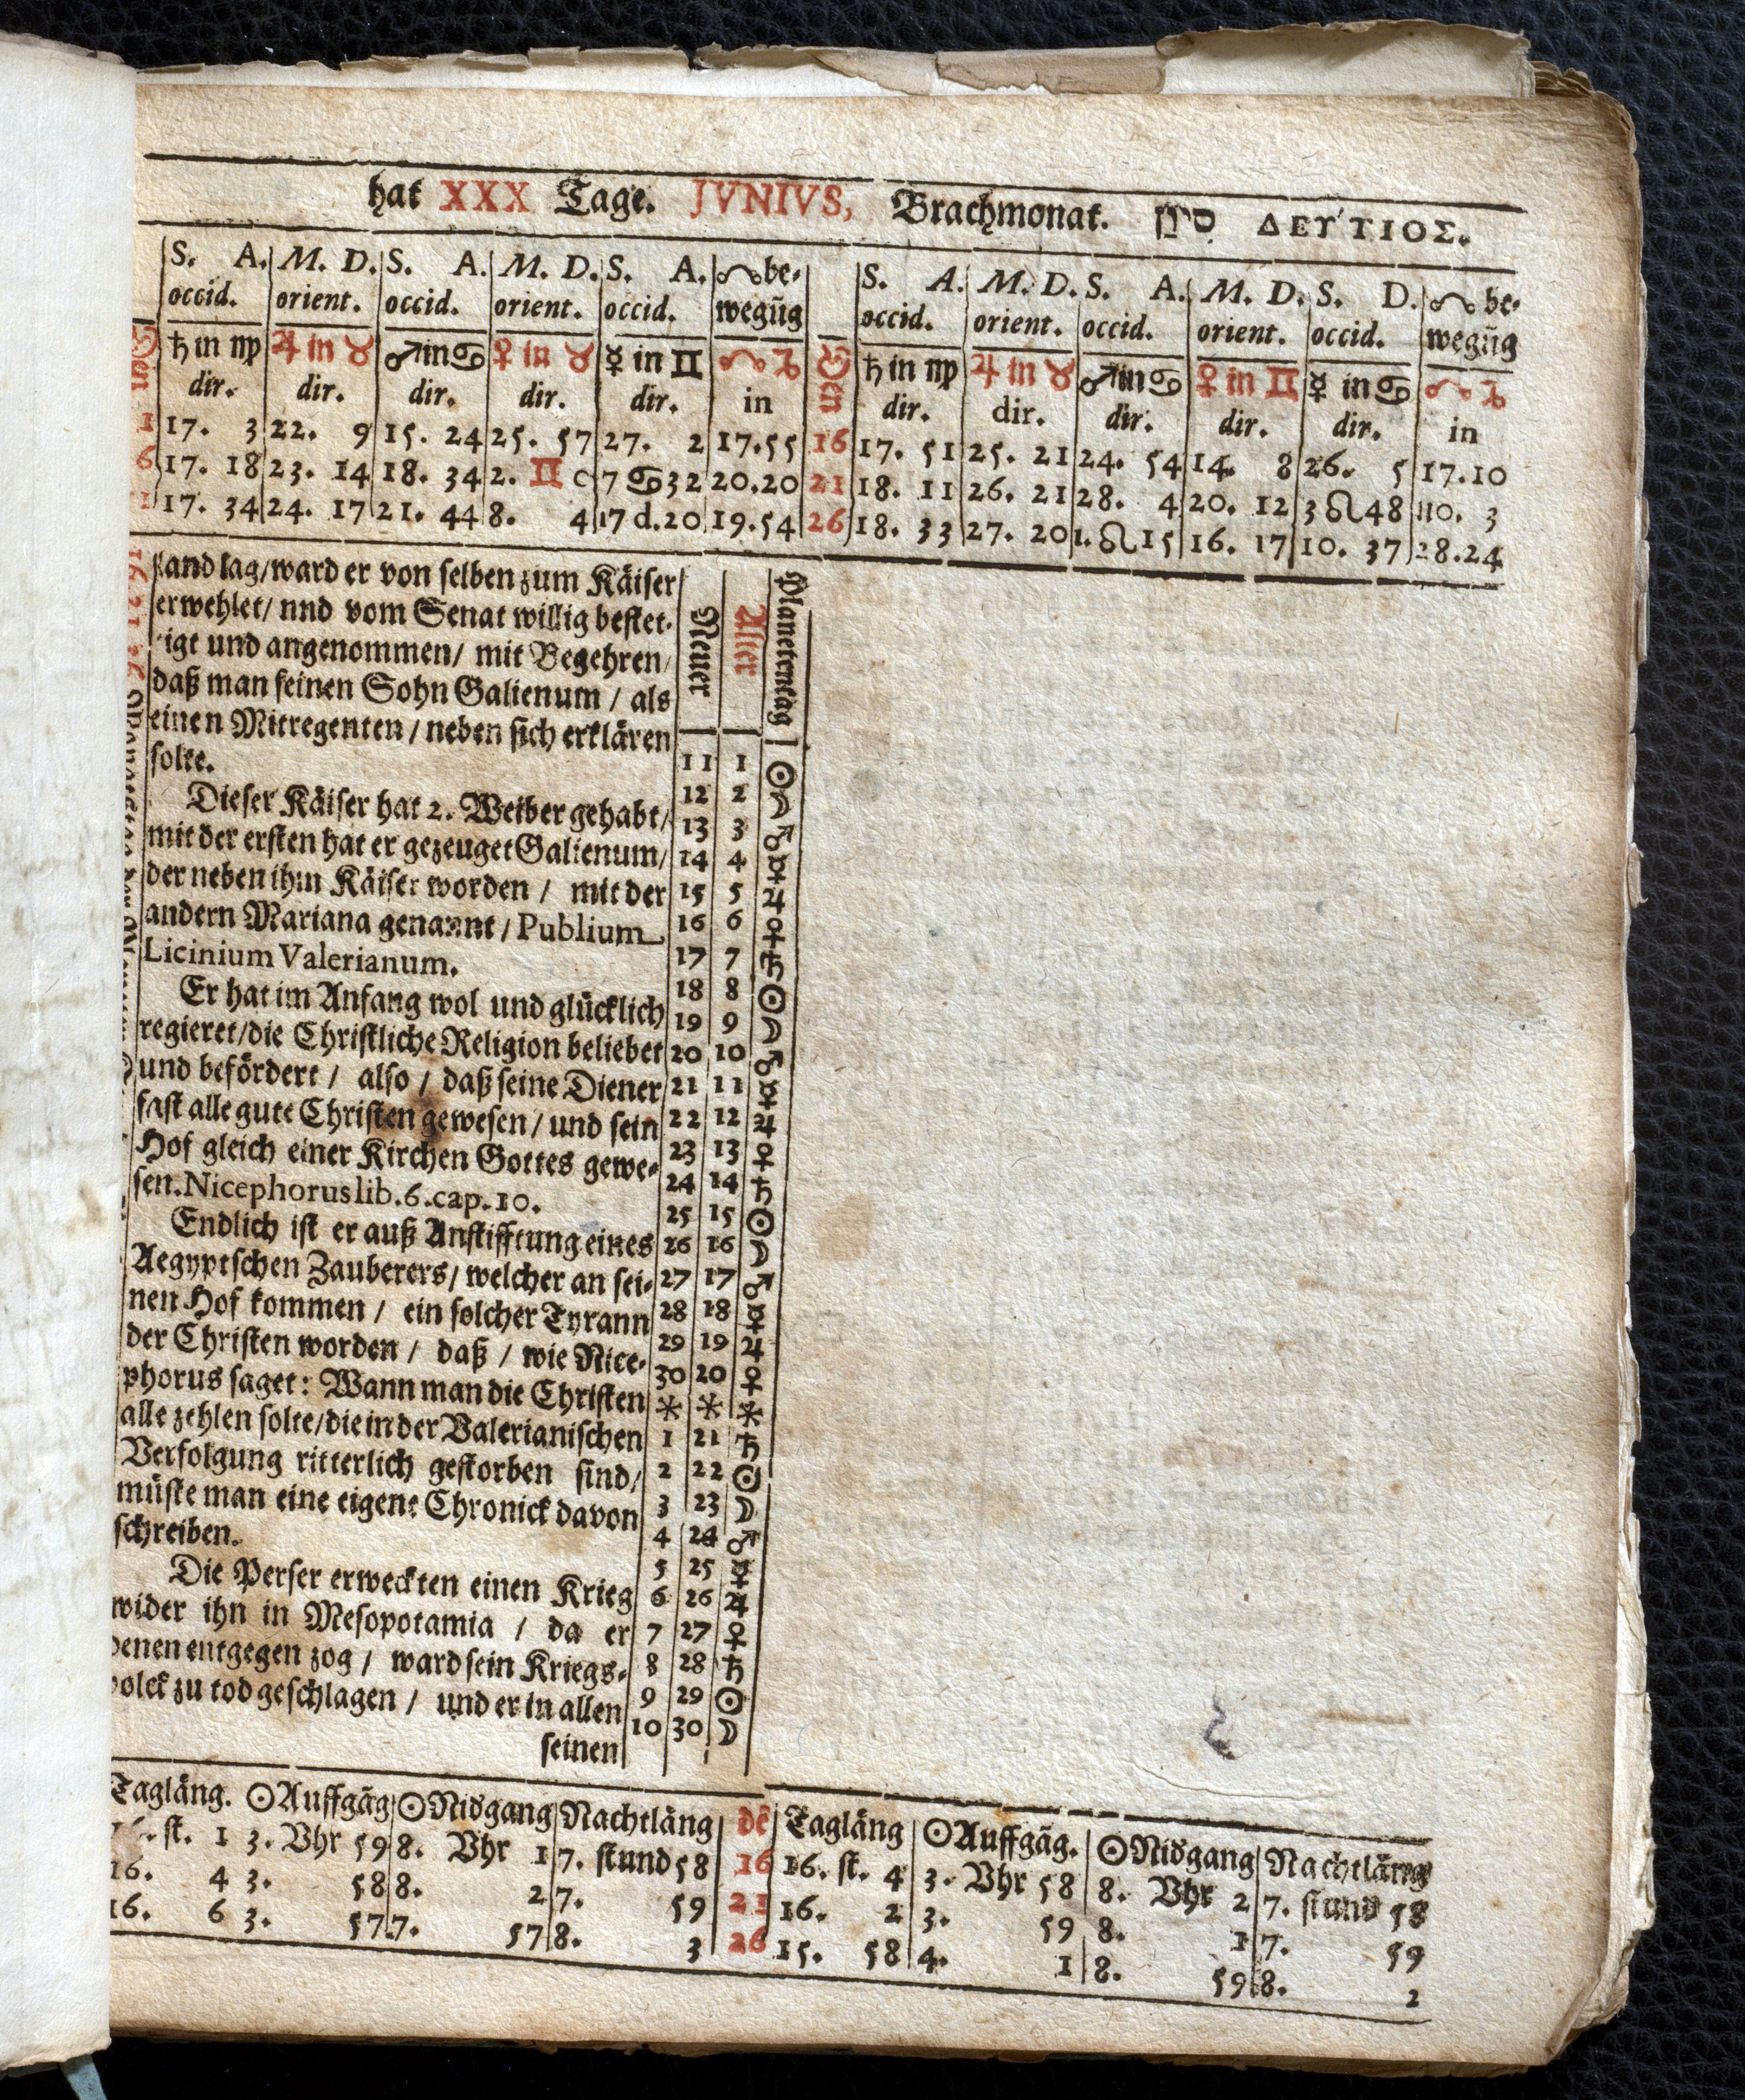 hat XXX Tage. JVNIVS, Brachmonat. סיון ΔΕΎΤΙΟΣ.
S. A. M. D. S. A. M. D. S. A. ☊ be- S. A. M. D. S. A. M. D. S. D. ☊ be-
occid. orient. occid. orient. occid. wegũg occid. orient. occid. orient. occid. wegũg
Den ♄ in ♍ ♃ in ♉ ♂ in ♋ ♀ in ♉ ☿ in ♊ ☊ ♑ Den ♄ in ♍ ♃ in ♉ ♂ in ♋ ♀ in ♊ ☿ in ♋ ☊ ♑
dir. dir. dir. dir. dir. in dir. dir. dir. dir. dir. in
1 17. 3 22. 9 15. 24 25. 57 27. 2 17.55 16 17. 51 25. 21 24. 54 14. 8 26. 5 17.10
6 17. 18 23. 14 18. 34 2. ♊ 0 7 ♋ 32 20.20 21 18. 11 26. 21 28. 4 20. 12 3 ♌ 48 10. 3
1 17. 34 24. 17 21. 44 8. 4 17 d.20 19.54 26 18. 33 27. 20 1. ♌ 15 16. 17 10. 37 28.24
land lag/ward er von selben zum Käiser
erwehlet/ nnd vom Senat willig bestet-
igt und angenommen/ mit Begehren/
daß man seinen Sohn Galienum / als
einen Mitregenten / neben sich erklären
solte.
Dieser Käiser hat 2. Weiber gehabt/
mit der ersten hat er gezeuget Galienum/
der neben ihm Käiser worden / mit der
andern Mariana genannt / Publium
Licinium Valerianum.
Er hat im Anfang wol und glücklich
regieret/die Christliche Religion beliebet
und befördert / also / daß seine Diener
fast alle gute Christen gewesen / und sein
Hof gleich einer Kirchen Gottes gewe-
sen. Nicephorus lib. 6. cap. 10.
Endlich ist er auß Anstifftung eines
Aegyptschen Zauberers/ welcher an sei-
nen Hof kommen / ein solcher Tyrann
der Christen worden / daß / wie Nice-
phorus saget: Wann man die Christen
alle zehlen solte/die in der Valerianischen
Verfolgung ritterlich gestorben sind/
müste man eine eigene Chronick davon
schreiben.
Die Perser erweckten einen Krieg
wider ihn in Mesopotamia / da er
denen entgegen zog / ward sein Kriegs-
volck zu tod geschlagen / und er in allen
seinen
Neuer Alter Planetentag
11 1 ☉
12 2 ☽
13 3 ♂
14 4 ☿
15 5 ♃
16 6 ♀
17 7 ♄
18 8 ☉
19 9 ☽
20 10 ♂
21 11 ☿
22 12 ♃
23 13 ♀
24 14 ♄
25 15 ☉
26 16 ☽
27 17 ♂
28 18 ☿
29 19 ♃
30 20 ♀
* * *
1 21 ♄
2 22 ☉
3 23 ☽
4 24 ♂
5 25 ☿
6 26 ♃
7 27 ♀
8 28 ♄
9 29 ☉
10 30 ☽
Tagläng. ☉Auffgãg ☉Nidgang Nachtläng dẽ Tagläng ☉Auffgãg. ☉Nidgang Nachtläng
st. 1 3. Vhr 59 8. Vhr 1 7. stund 58 16 16. st. 4 3. Vhr 58 8. Vhr 2 7. stund 58
16. 4 3. 58 8. 2 7. 59 21 16. 2 3. 59 8. 1 7. 59
16. 6 3. 57 7. 57 8. 3 26 15. 58 4. 1 8. 59 8. 2